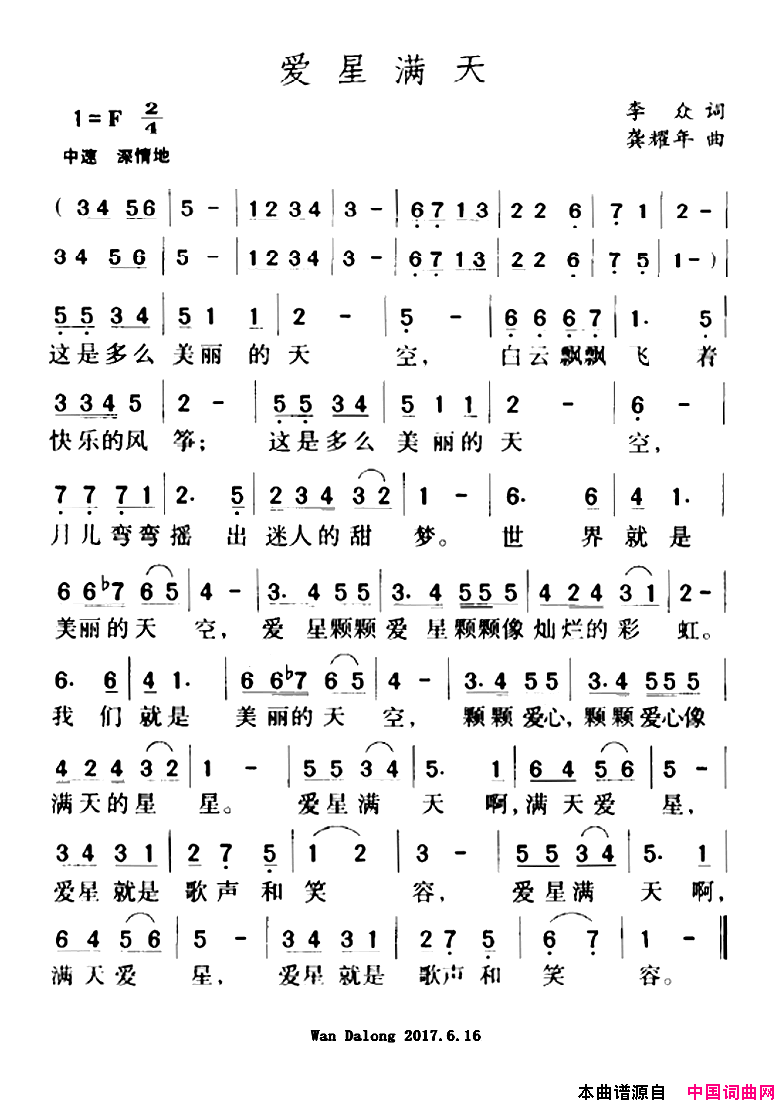 爱星满天
1=F 2/4
李 众 词
中速 深情地
龚耀年 曲
( 34 56 | 5 - | 1234 | 3 - | 6713 | 22 6 | 7 1 | 2 -
34 56 | 5 - | 1234 | 3 - | 6713 | 22 6 | 7 5 | 1 - )
5534 | 51 1 | 2 - | 5 - | 66 67 | 1. 5
这是多么 美丽 的 天 空, 白云飘飘 飞 着
3345 | 2 - | 5534 | 51 1 | 2 - | 6 -
快乐的风 筝; 这是多么 美丽的 天 空,
77 71 | 2. 5 | 234 32 | 1 - | 6. 6 | 4 1.
月儿弯弯 摇 出 迷人的甜 梦。 世 界 就 是
66♭7 65 | 4 - | 3. 4 55 | 3. 4 555 | 424 31 | 2 -
美丽的天 空, 爱 星颗颗 爱 星颗颗像 灿烂的彩 虹。
6. 6 | 4 1. | 66♭7 65 | 4 - | 3. 4 55 | 3. 4 555
我 们 就是 美丽的天 空, 颗颗爱心, 颗颗爱心像
424 32 | 1 - | 55 34 | 5. 1 | 64 56 | 5 -
满天的星 星。 爱星满 天 啊, 满天爱 星,
34 31 | 27 5 | 1 2 | 3 - | 55 34 | 5. 1
爱星就是 歌声和 笑 容, 爱星满 天 啊,
64 56 | 5 - | 34 31 | 27 5 | 6 7 | 1 -
满天爱 星, 爱星就是 歌声和 笑 容。
Wan Dalong 2017.6.16
本曲谱源自 中国词曲网